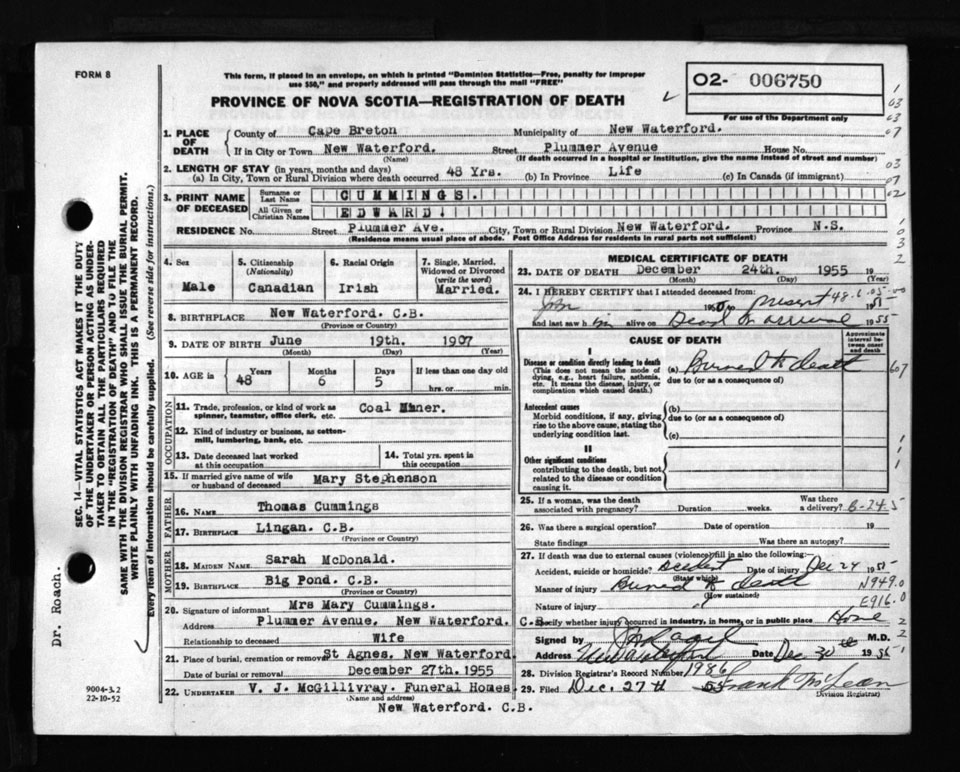 FORM 8
This form, if placed in an envelope, on which is printed "Dominion Statistics—Free, penalty for improper
use $50," and properly addressed will pass through the mail "FREE"
PROVINCE OF NOVA SCOTIA—REGISTRATION OF DEATH
02- 006750
For use of the Department only
1. PLACE OF DEATH
County of Cape Breton Municipality of New Waterford.
If in City or Town New Waterford. Street Plummer Avenue House No.
(Name) (If death occurred in a hospital or institution, give the name instead of street and number)
2. LENGTH OF STAY (in years, months and days)
(a) In City, Town or Rural Division where death occurred 48 Yrs. (b) In Province Life (c) In Canada (if immigrant)
3. PRINT NAME OF DECEASED
Surname or Last Name CUMMINGS.
All Given or Christian Names EDWARD.
RESIDENCE No. Street Plummer Ave. City, Town or Rural Division New Waterford. Province N.S.
(Residence means usual place of abode. Post Office Address for residents in rural parts not sufficient)
4. Sex
Male
5. Citizenship
(Nationality)
Canadian
6. Racial Origin
Irish
7. Single, Married,
Widowed or Divorced
(write the word)
Married.
8. BIRTHPLACE New Waterford. C.B.
(Province or Country)
9. DATE OF BIRTH June 19th. 1907
(Month) (Day) (Year)
10. AGE in Years Months Days If less than one day old
48 6 5 hrs. or min.
OCCUPATION
11. Trade, profession, or kind of work as
spinner, teamster, office clerk, etc. Coal Miner.
12. Kind of industry or business, as cotton-
mill, lumbering, bank, etc.
13. Date deceased last worked
at this occupation
14. Total yrs. spent in
this occupation
15. If married give name of wife
or husband of deceased Mary Stephenson
FATHER
16. NAME Thomas Cummings
17. BIRTHPLACE Lingan. C.B.
(Province or Country)
MOTHER
18. MAIDEN NAME Sarah McDonald.
19. BIRTHPLACE Big Pond. C.B.
(Province or Country)
20. Signature of informant Mrs Mary Cummings.
Address Plummer Avenue, New Waterford. C.B.
Relationship to deceased Wife
21. Place of burial, cremation or removal St Agnes. New Waterford.
Date of burial or removal December 27th. 1955
22. UNDERTAKER V. J. McGillivray. Funeral Homes.
(Name and address)
New Waterford. C.B.
MEDICAL CERTIFICATE OF DEATH
23. DATE OF DEATH December 24th. 1955 19
(Month) (Day)
24. I HEREBY CERTIFY that I attended deceased from:
1950 to present 1955
and last saw him alive on Dead on arrival 1955
CAUSE OF DEATH
Approximate interval between onset and death
I
Disease or condition directly leading to death
(This does not mean the mode of
dying, e.g., heart failure, asthenia,
etc. It means the disease, injury, or
complication which caused death.)
(a) Burned to death
due to (or as a consequence of)
Antecedent causes
Morbid conditions, if any, giving
rise to the above cause, stating the
underlying condition last.
(b)
due to (or as a consequence of)
(c)
II
Other significant conditions
contributing to the death, but not
related to the disease or condition
causing it.
25. If a woman, was the death
associated with pregnancy? Duration weeks. Was there
a delivery?
26. Was there a surgical operation? Date of operation 19
State findings Was there an autopsy?
27. If death was due to external causes (violence) fill in also the following:—
Accident, suicide or homicide? Accident Date of injury Dec 24 1955
(State which)
Manner of injury Burned to death N949.0
(How sustained)
Nature of injury E916.0
Specify whether injury occurred in industry, in home, or in public place Home
Signed by M.D.
Address New Waterford Date Dec 30th
28. Division Registrar's Record Number 1986
29. Filed Dec. 27th 55 Frank McLean
(Division Registrar)
SEC. 14—VITAL STATISTICS ACT MAKES IT THE DUTY
OF THE UNDERTAKER OR PERSON ACTING AS UNDER-
TAKER TO OBTAIN ALL THE PARTICULARS REQUIRED
IN THE "REGISTRATION OF DEATH" AND TO FILE THE
SAME WITH THE DIVISION REGISTRAR WHO SHALL ISSUE THE BURIAL PERMIT.
WRITE PLAINLY WITH UNFADING INK. THIS IS A PERMANENT RECORD.
Every item of information should be carefully supplied. (See reverse side for instructions.)
Dr. Roach.
9004-3.2
22-10-52